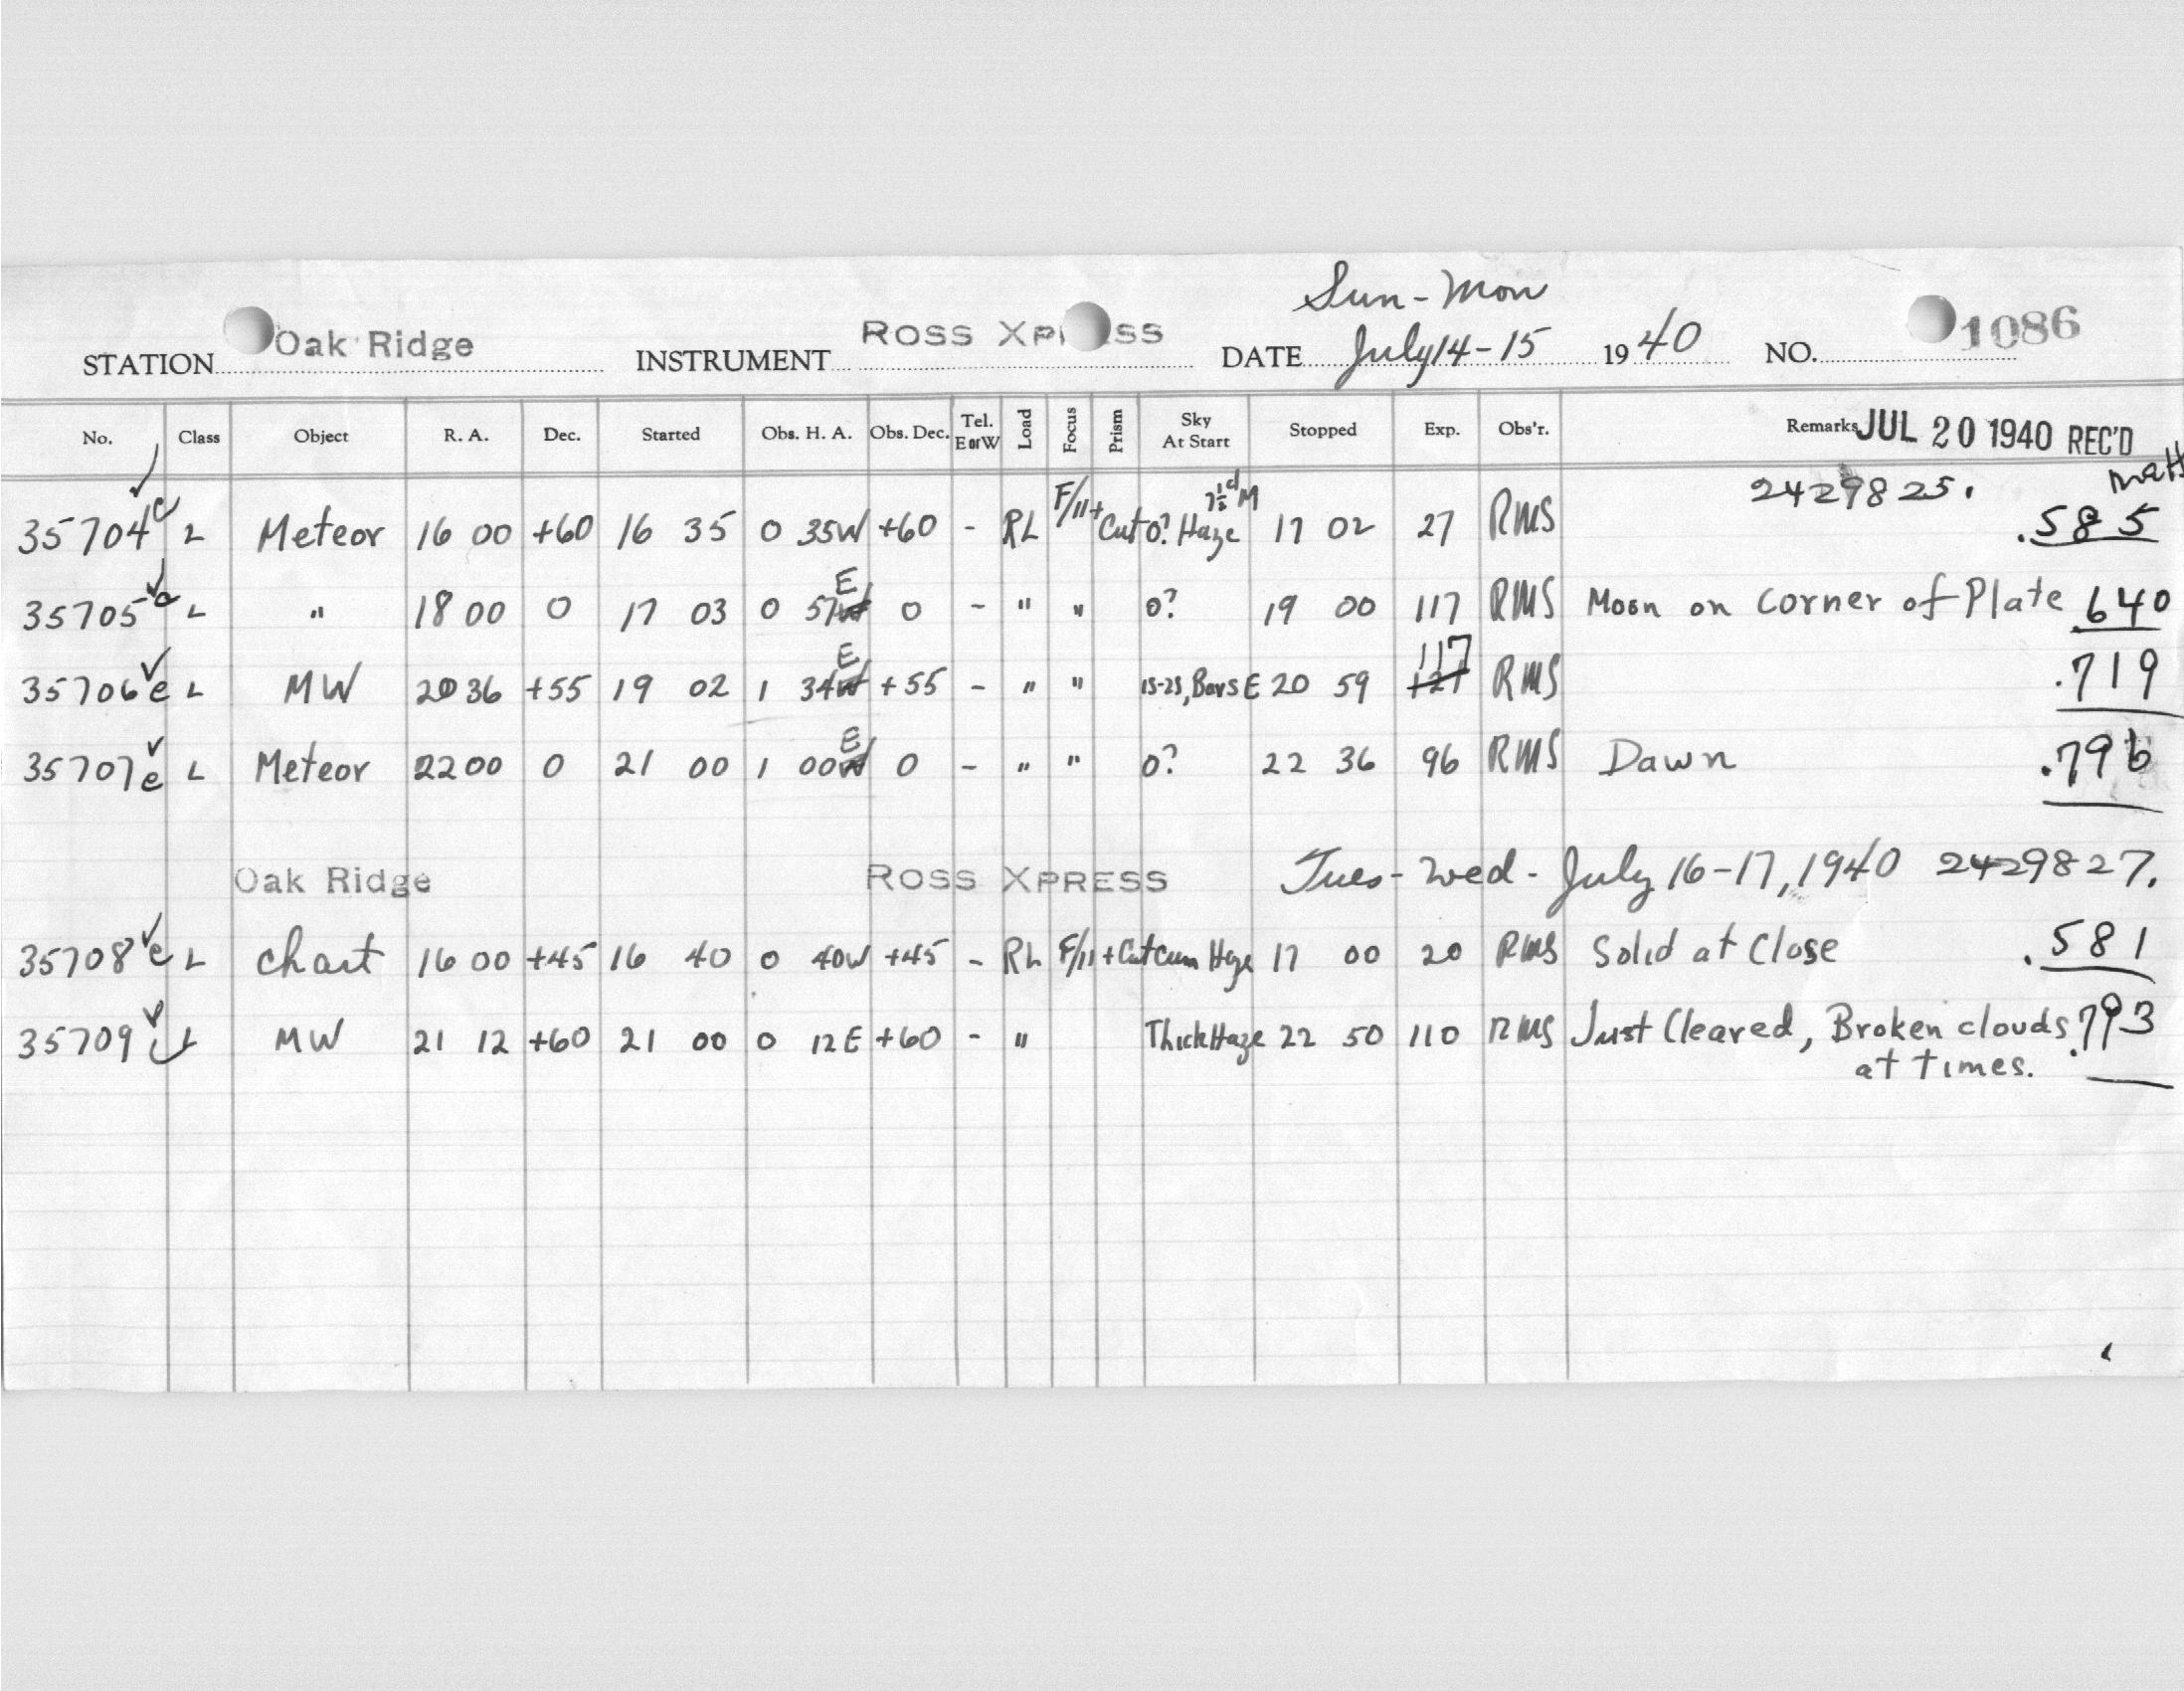 Sun-Mon
STATION Oak Ridge INSTRUMENT ROSS XPRESS DATE July 14-15 1940 NO. 1086
No. Class Object R. A. Dec. Started Obs. H. A. Obs. Dec. Tel. E or W Load Focus Prism Sky At Start Stopped Exp. Obs'r. Remarks JUL 20 1940 REC'D
2429825.
35704 e L Meteor 16 00 +60 16 35 0 35W +60 - RL F/11+ Cut 0? Haze 17 02 27 RMS .585
35705 e L " 18 00 0 17 03 0 57 E 0 - " " 0? 19 00 117 RMS Moon on Corner of Plate .640
35706 e L MW 20 36 +55 19 02 1 34 E +55 - " " 1S-2S, Bars E 20 59 117 RMS .719
35707 e L Meteor 22 00 0 21 00 1 00 E 0 - " " 0? 22 36 96 RMS Dawn .796
Oak Ridge ROSS XPRESS Tues-Wed- July 16-17, 1940 2429827.
35708 e L Chart 16 00 +45 16 40 0 40W +45 - RL F/11 + Cut Cum Haze 17 00 20 RMS Solid at Close .581
35709 L MW 21 12 +60 21 00 0 12 E +60 - " Thick Haze 22 50 110 RMS Just Cleared, Broken clouds .793
at times.